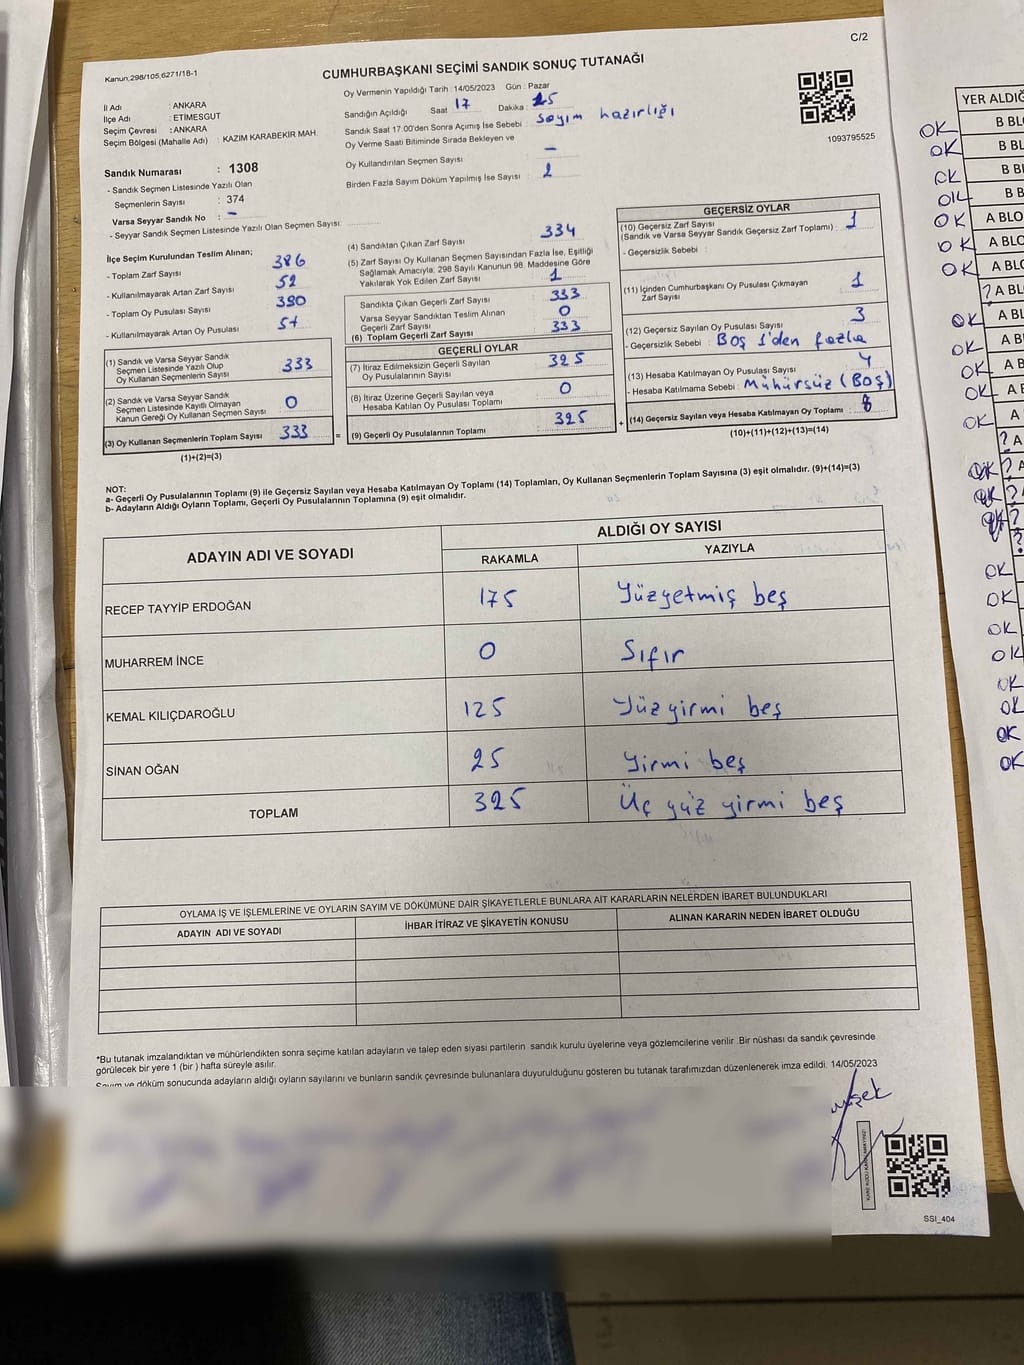 C/2
Kanun,298/105,6271/18-1
CUMHURBAŞKANI SEÇİMİ SANDIK SONUÇ TUTANAĞI
İl Adı : ANKARA
İlçe Adı : ETİMESGUT
Seçim Çevresi : ANKARA
Seçim Bölgesi (Mahalle Adı) : KAZIM KARABEKİR MAH.
Oy Vermenin Yapıldığı Tarih : 14/05/2023 Gün : Pazar
Sandığın Açıldığı Saat 17 Dakika : 25
Sandık Saat 17:00'den Sonra Açımış İse Sebebi : Sayım hazırlığı
Oy Verme Saati Bitiminde Sırada Bekleyen ve
Oy Kullandırılan Seçmen Sayısı –
Birden Fazla Sayım Döküm Yapılmış İse Sayısı : 2
1093795525
Sandık Numarası : 1308
- Sandık Seçmen Listesinde Yazılı Olan
Seçmenlerin Sayısı : 374
Varsa Seyyar Sandık No : –
- Seyyar Sandık Seçmen Listesinde Yazılı Olan Seçmen Sayısı:
İlçe Seçim Kurulundan Teslim Alınan;
- Toplam Zarf Sayısı 386
- Kullanılmayarak Artan Zarf Sayısı 52
- Toplam Oy Pusulası Sayısı 390
- Kullanılmayarak Artan Oy Pusulası 57
(1) Sandık ve Varsa Seyyar Sandık
Seçmen Listesinde Yazılı Olup
Oy Kullanan Seçmenlerin Sayısı 333
(2) Sandık ve Varsa Seyyar Sandık
Seçmen Listesinde Kayıtlı Olmayan
Kanun Gereği Oy Kullanan Seçmen Sayısı 0
(3) Oy Kullanan Seçmenlerin Toplam Sayısı 333 =
(1)+(2)=(3)
(4) Sandıktan Çıkan Zarf Sayısı 334
(5) Zarf Sayısı Oy Kullanan Seçmen Sayısından Fazla İse, Eşitliği
Sağlamak Amacıyla; 298 Sayılı Kanunun 98. Maddesine Göre
Yakılarak Yok Edilen Zarf Sayısı 1
Sandıkta Çıkan Geçerli Zarf Sayısı 333
Varsa Seyyar Sandıktan Teslim Alınan
Geçerli Zarf Sayısı 0
(6) Toplam Geçerli Zarf Sayısı 333
GEÇERLİ OYLAR
(7) İtiraz Edilmeksizin Geçerli Sayılan
Oy Pusulalarının Sayısı 325
(8) İtiraz Üzerine Geçerli Sayılan veya
Hesaba Katılan Oy Pusulası Toplamı 0
(9) Geçerli Oy Pusulalarının Toplamı 325 +
GEÇERSİZ OYLAR
(10) Geçersiz Zarf Sayısı
(Sandık ve Varsa Seyyar Sandık Geçersiz Zarf Toplamı) : 1
- Geçersizlik Sebebi :
(11) İçinden Cumhurbaşkanı Oy Pusulası Çıkmayan
Zarf Sayısı 1
(12) Geçersiz Sayılan Oy Pusulası Sayısı 3
- Geçersizlik Sebebi : Boş 1'den fazla
(13) Hesaba Katılmayan Oy Pusulası Sayısı 4
- Hesaba Katılmama Sebebi : Mühürsüz (Boş)
(14) Geçersiz Sayılan veya Hesaba Katılmayan Oy Toplamı 8
(10)+(11)+(12)+(13)=(14)
NOT:
a- Geçerli Oy Pusulalarının Toplamı (9) ile Geçersiz Sayılan veya Hesaba Katılmayan Oy Toplamı (14) Toplamları, Oy Kullanan Seçmenlerin Toplam Sayısına (3) eşit olmalıdır. (9)+(14)=(3)
b- Adayların Aldığı Oyların Toplamı, Geçerli Oy Pusulalarının Toplamına (9) eşit olmalıdır.
ADAYIN ADI VE SOYADI
ALDIĞI OY SAYISI
RAKAMLA YAZIYLA
RECEP TAYYİP ERDOĞAN 175 Yüzyetmiş beş
MUHARREM İNCE 0 Sıfır
KEMAL KILIÇDAROĞLU 125 Yüzyirmi beş
SİNAN OĞAN 25 Yirmi beş
TOPLAM 325 Üç yüz yirmi beş
OYLAMA İŞ VE İŞLEMLERİNE VE OYLARIN SAYIM VE DÖKÜMÜNE DAİR ŞİKAYETLERLE BUNLARA AİT KARARLARIN NELERDEN İBARET BULUNDUKLARI
ADAYIN ADI VE SOYADI İHBAR İTİRAZ VE ŞİKAYETİN KONUSU ALINAN KARARIN NEDEN İBARET OLDUĞU
*Bu tutanak imzalandıktan ve mühürlendikten sonra seçime katılan adayların ve talep eden siyasi partilerin sandık kurulu üyelerine veya gözlemcilerine verilir. Bir nüshası da sandık çevresinde
görülecek bir yere 1 (bir ) hafta süreyle asılır.
Sayım ve döküm sonucunda adayların aldığı oyların sayılarını ve bunların sandık çevresinde bulunanlara duyurulduğunu gösteren bu tutanak tarafımızdan düzenlenerek imza edildi. 14/05/2023
SSI_404
YER ALDIĞ
OK B BLO
OK B BL
OK B BI
OK B B
OK A BLO
OK A BLO
OK A BL
? A BL
OK A BL
OK A B
OK A B
OK A B
OK A
? A
OK ? A
OK ?
OK ?
?
OK
OK
OK
OK
OK
OK
OK
OK